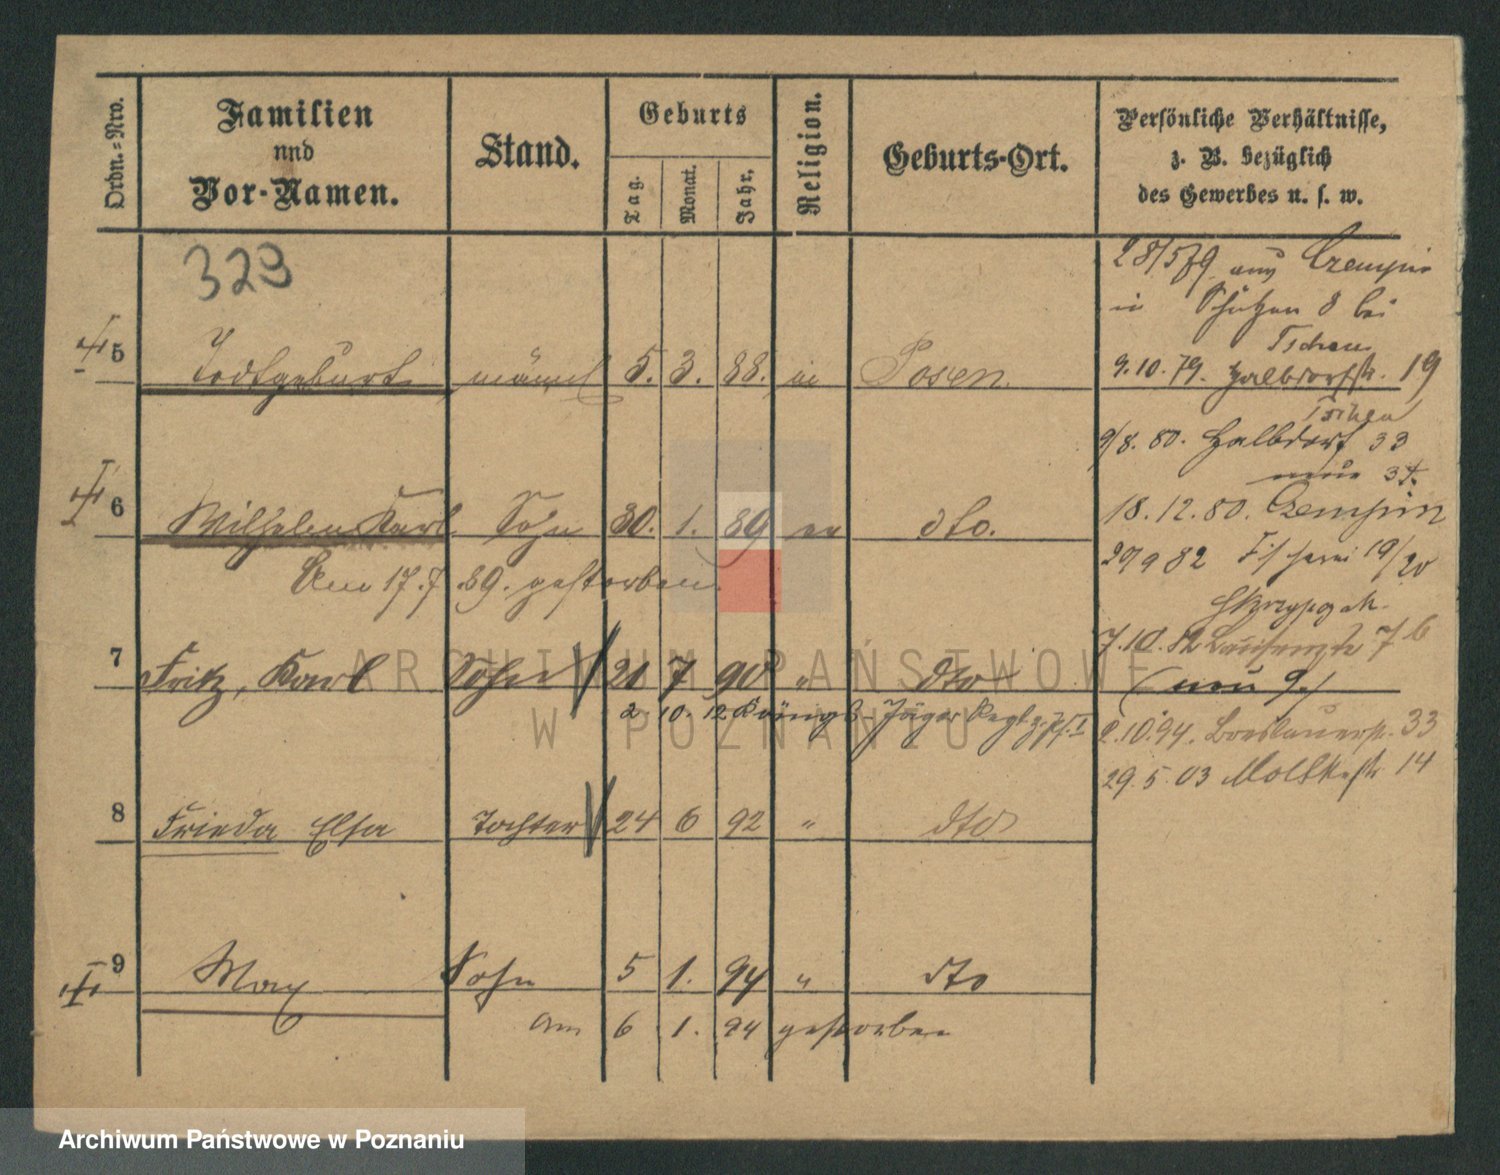 Ordn.-Nro.
Familien
und
Vor-Namen.
Stand.
Geburts
Tag.
Monat.
Jahr.
Religion.
Geburts-Ort.
Persönliche Verhältnisse,
z. B. bezüglich
des Gewerbes u. s. w.
323
5 Todtgeburt männl 5. 3. 88. Posen.
6 Wilhelm Karl. Sohn 30. 1. 89 ev dto.
Am 17. 7 89. gestorben.
7 Fritz, Karl Sohn 21 7 90 " dto
2 10. 12 Königs-Jäger Regt z. Pf. I
8 Frieda Elsa Tochter 24 6 92 " dto
9 Max Sohn 5 1. 94 " dto
am 6 1. 94 gestorben
28/5 79 aus Czempin
in Schützen 8 bei
9.10.79. Halbdorfstr. 19
9/8. 80. Halbdorf 33
neue 34.
18.12.80. Czempin
29/9 82 Fischerei 19/20
7.10. 76
(neu 9.)
2.10.94. Breslauerstr. 33
29.5.03 Moltkestr 14
ARCHIWUM PAŃSTWOWE
W POZNANIU
Archiwum Państwowe w Poznaniu